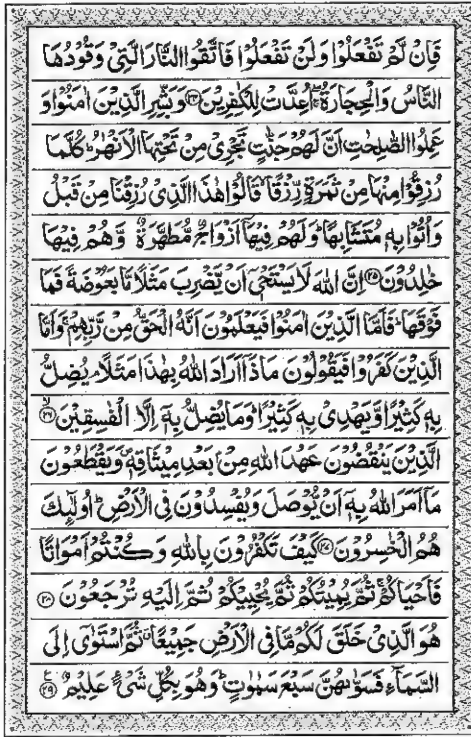 فَاِنْ لَّمْ تَفْعَلُوْا وَلَنْ تَفْعَلُوْا فَاتَّقُوا النَّارَ الَّتِيْ وَقُوْدُهَا
النَّاسُ وَالْحِجَارَةُ ۖۚ اُعِدَّتْ لِلْكٰفِرِيْنَ ﴿۲۴﴾ وَبَشِّرِ الَّذِيْنَ اٰمَنُوْا وَ
عَمِلُوا الصّٰلِحٰتِ اَنَّ لَهُمْ جَنّٰتٍ تَجْرِيْ مِنْ تَحْتِهَا الْاَنْهٰرُ ؕ كُلَّمَا
رُزِقُوْا مِنْهَا مِنْ ثَمَرَةٍ رِّزْقًا ۙ قَالُوْا هٰذَا الَّذِيْ رُزِقْنَا مِنْ قَبْلُ
وَاُتُوْا بِهٖ مُتَشَابِهًا ؕ وَلَهُمْ فِيْهَاۤ اَزْوَاجٌ مُّطَهَّرَةٌ ۙ وَّهُمْ فِيْهَا
خٰلِدُوْنَ ﴿۲۵﴾ اِنَّ اللّٰهَ لَا يَسْتَحْيٖۤ اَنْ يَّضْرِبَ مَثَلًا مَّا بَعُوْضَةً فَمَا
فَوْقَهَا ؕ فَاَمَّا الَّذِيْنَ اٰمَنُوْا فَيَعْلَمُوْنَ اَنَّهُ الْحَقُّ مِنْ رَّبِّهِمْ ۚ وَاَمَّا
الَّذِيْنَ كَفَرُوْا فَيَقُوْلُوْنَ مَاذَاۤ اَرَادَ اللّٰهُ بِهٰذَا مَثَلًا ۘ يُضِلُّ
بِهٖ كَثِيْرًا ۙ وَّيَهْدِيْ بِهٖ كَثِيْرًا ؕ وَمَا يُضِلُّ بِهٖۤ اِلَّا الْفٰسِقِيْنَ ﴿۲۶﴾ۙ
الَّذِيْنَ يَنْقُضُوْنَ عَهْدَ اللّٰهِ مِنْۢ بَعْدِ مِيْثَاقِهٖ ۪ وَيَقْطَعُوْنَ
مَاۤ اَمَرَ اللّٰهُ بِهٖۤ اَنْ يُّوْصَلَ وَيُفْسِدُوْنَ فِي الْاَرْضِ ؕ اُولٰٓئِكَ
هُمُ الْخٰسِرُوْنَ ﴿۲۷﴾ كَيْفَ تَكْفُرُوْنَ بِاللّٰهِ وَكُنْتُمْ اَمْوَاتًا
فَاَحْيَاكُمْ ۚ ثُمَّ يُمِيْتُكُمْ ثُمَّ يُحْيِيْكُمْ ثُمَّ اِلَيْهِ تُرْجَعُوْنَ ﴿۲۸﴾
هُوَ الَّذِيْ خَلَقَ لَكُمْ مَّا فِي الْاَرْضِ جَمِيْعًا ۗ ثُمَّ اسْتَوٰۤى اِلَى
السَّمَآءِ فَسَوّٰىهُنَّ سَبْعَ سَمٰوٰتٍ ؕ وَهُوَ بِكُلِّ شَيْءٍ عَلِيْمٌ ﴿۲۹﴾